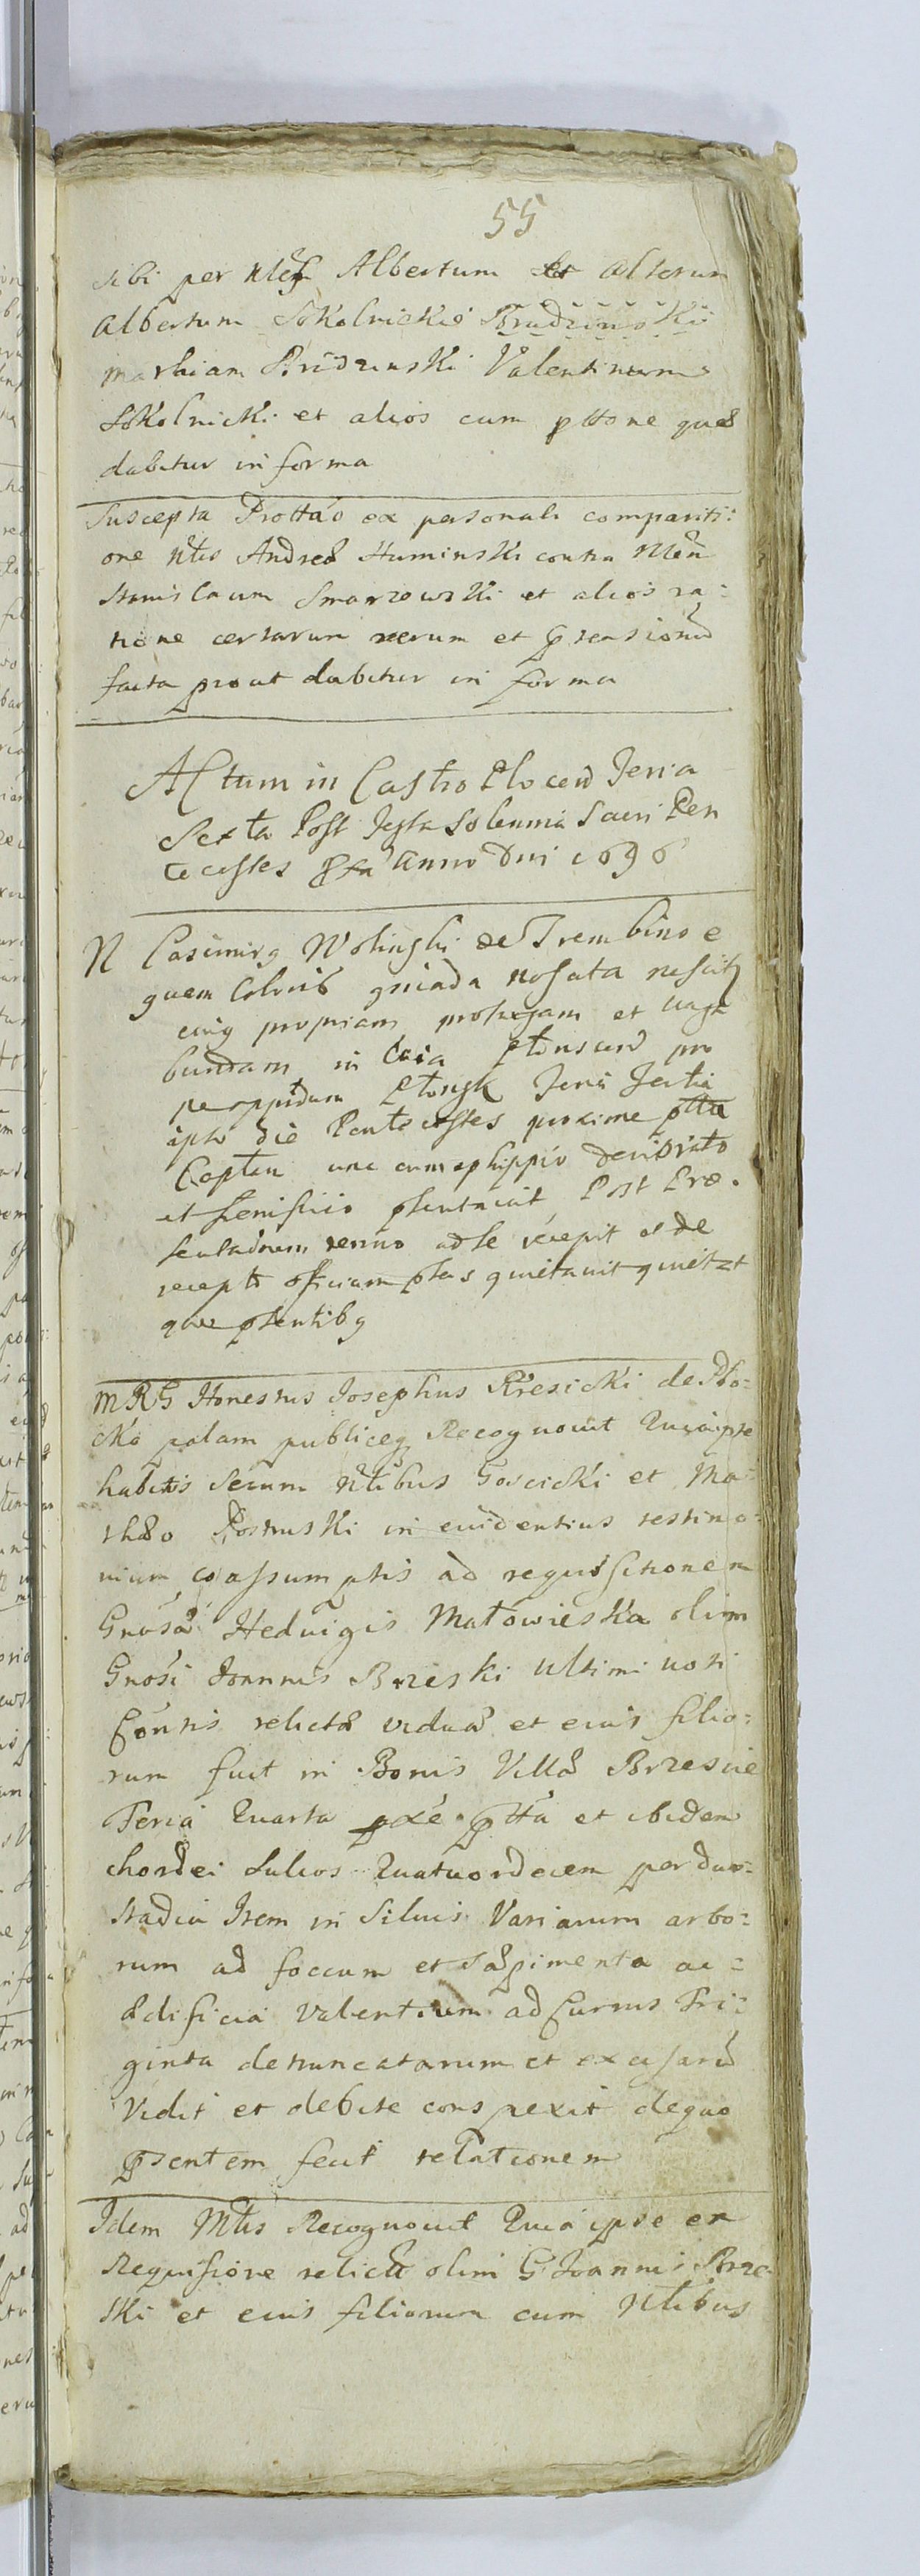 55
sibi per Nlem Albertum et alterum
Albertum Sokolnickie Brudzinskii
Mathiam Brudzinski Valentinum
Sokolnicki et alios cum pttone quae
dabitur in forma
Suscepta Prottao ex personali compariti:
one Nlis Andreae Huminski contra Nlem
Stanislaum Smarzewski et alios ra:
tione certarum rerum et prtensionu
facta prout dabitur in forma
Actum in Castro Plocen Feria
Sexta Post Festa Solennia Sacri Pen
tecostes Anno Dni 1696
N Casimirg Wolinski de Trembino e
quem coloris gniada nosata nescitg
cuig propriam profugam et vaga
bundam in Plonscen pro
per oppidum Plonsk Feria Tertia
ipso die Pentecostes proxime ptta
Coptem una cum ephippio
et ptentavit Post Prae:
sentadnem ad se recepit et de
recepto officium ptens quietavit quietat
que ptentibg
MRG Honestus Josephus Kresicki de Plo:
cko palam publiceq Recognovit Quia ipse
habitis secum Nlibus Goscicki et Ma:
thaeo Rostuski in evidentius testimo:
nium coassumptis ad requisitionem
Gnosa Hedvigis Małowieska olim
Gnosi Joannis Brzeski ultimi voti
Contis relicta vidua et eius filio:
rum fuit in Bonis Villa Brzescie
Feria Quarta pxe ptta et ibidem
hordei sulcos Quatuordecem per duo:
stadia Item in Silvis Variarum arbo:
rum ad foccum et saepimenta ac:
aedificia valentium ad Currus Tri:
ginta detruncatarum et excisaru
Vidit et debite conspexit de quo
prsentem fecit relationem
Idem Mtis Recognovit Quia ipse ex
Requisione relicta olim G Joannis Brze
ski et eius filiorum cum Nlibus